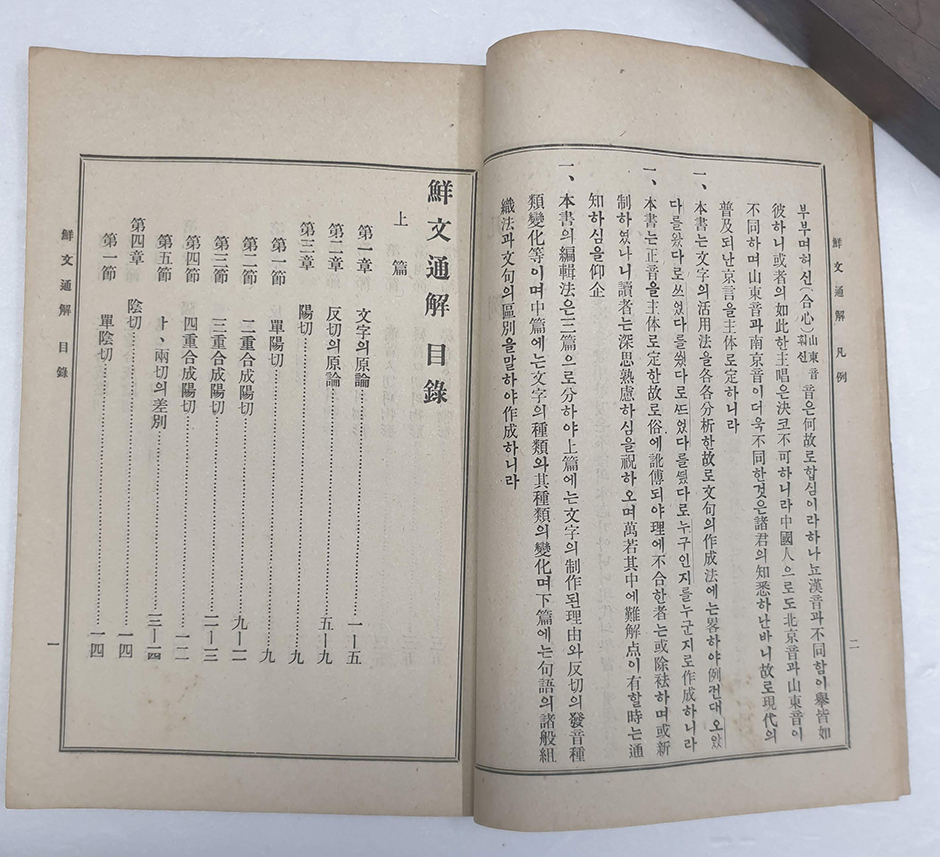 鮮文通解 凡例
二
부부며허신(合心)山東音 훠신 音은何故로합심이라하나뇨漢音과不同함이擧皆如
彼하니或者의如此한主唱은決코不可하니라中國人으로도北京音과山東音이
不同하며山東音과南京音이더욱不同한것은諸君의知悉하난바니故로現代의
普及되난京言을主体로定하니라
一、本書는文字의活用法을各各分析한故로文句의作成法에는畧하야例컨대오앗
다를왓다로쓰엇다를썻다로뜨엇다를떳다로누구인지를누군지로作成하니라
一、本書는正音을主体로定한故로俗에訛傅되야理에不合한者는或除袪하며或新
制하였나니讀者는深思熟慮하심을祝하오며萬若其中에難解点이有할時는通
知하심을仰企
一、本書의編輯法은三篇으로分하야上篇에는文字의制作된理由와反切의發音種
類變化等이며中篇에는文字의種類와其種類의變化며下篇에는句語의諸般組
織法과文句의區別을말하야作成하니라
鮮文通解 目錄
上篇
第一章 文字의原論……一—五
第二章 反切의原論……五—九
第三章 陽切……九
第一節 單陽切……九
第二節 二重合成陽切……九—一一
第三節 三重合成陽切……一一—一三
第四節 四重合成陽切……一二
第五節 ㅏ、兩切의差別……一三—一四
第四章 陰切……一四
第一節 單陰切……一四
鮮文通解 目錄
一